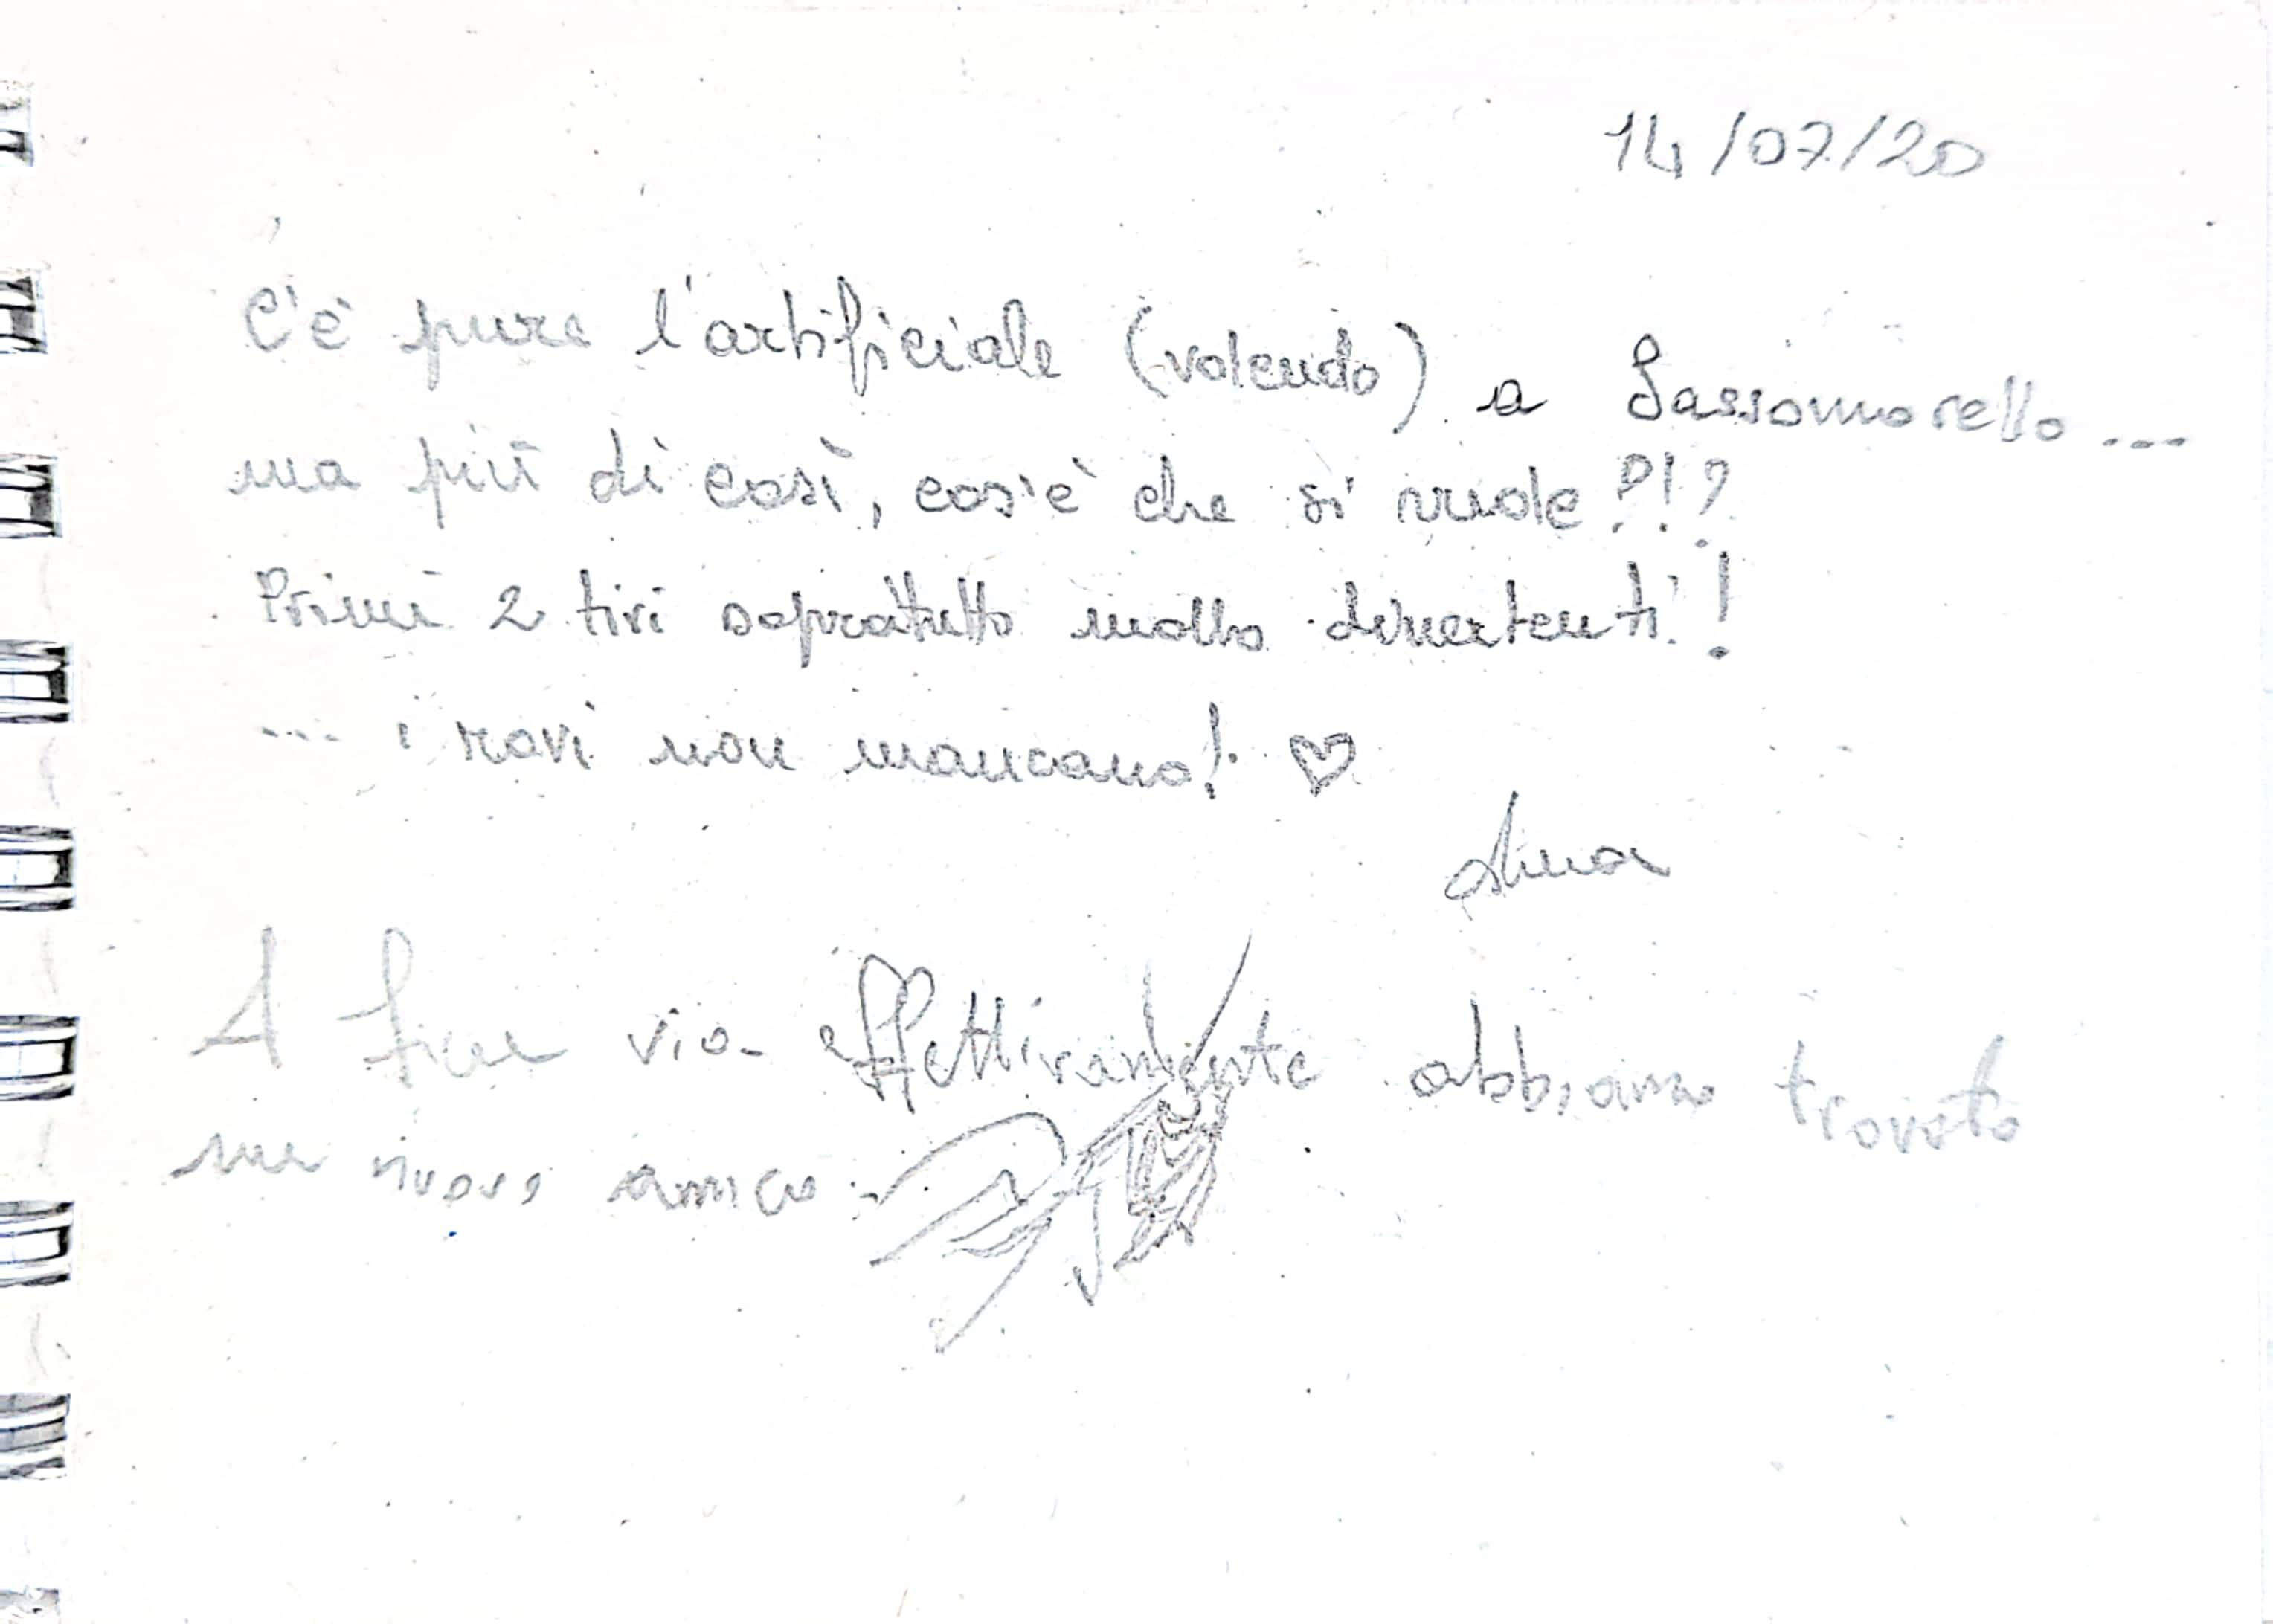 14/07/20
C'è pure l'artificiale (volendo) a Sassomorello...
ma più di così, cos'è che si vuole?!?
Primi 2 tiri soprattutto molto divertenti!
... i rovi non mancano! ♡
A fine via effettivamente abbiamo trovato
un nuovo amico